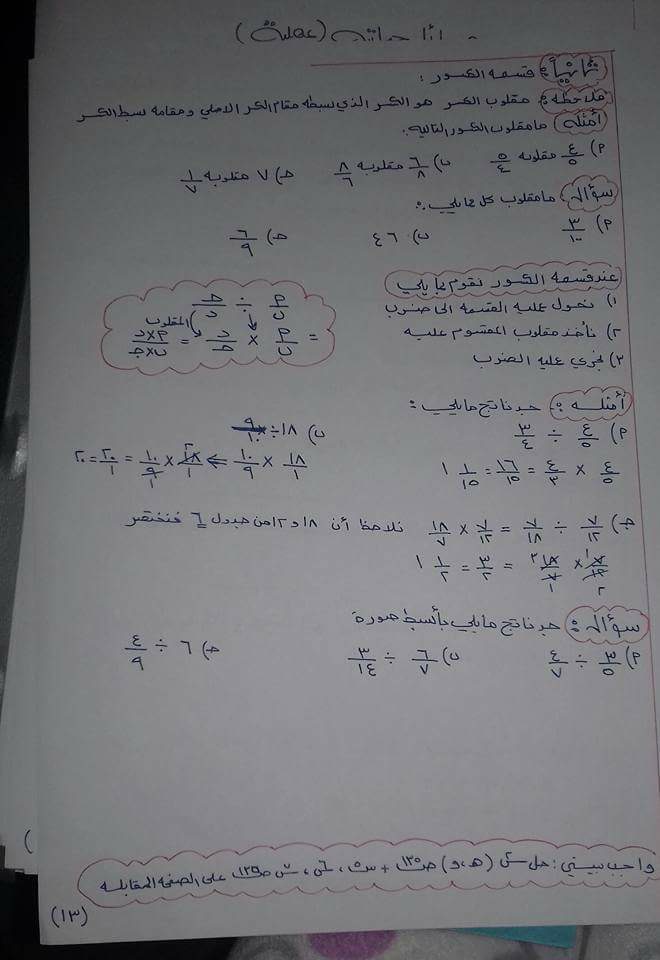 ثانياً: قسمة الكسور :
ملاحظة: مقلوب الكسر هو الكسر الذي بسطه مقام الكسر الاصلي ومقامه بسط الكسر
أمثلة: ما مقلوب الكسور التالية:
أ) ٤/٥ مقلوبه ٥/٤ ب) ٦/٨ مقلوبه ٨/٦ جـ) ٧ مقلوبه ١/٧
سؤال: ما مقلوب كل مما يلي:
أ) ٣/١٠ ب) ٤٦ جـ) ٦/٩
عند قسمة الكسور نقوم بما يلي
١) نحول عملية القسمة الى ضرب
٢) نأخذ مقلوب المقسوم عليه
٣) نجري عملية الضرب
أ/ب ÷ جـ/د
المقلوب
= أ/ب × د/جـ = أ×د/ب×جـ
أمثلة: جد ناتج ما يلي:
أ) ٤/٥ ÷ ٣/٤
٤/٥ × ٤/٣ = ١٦/١٥ = ١ ١/١٥
ب) ١٨ ÷ ٩/١٠
١٨/١ × ١٠/٩ ⇐ ١٨/١ × ١٠/٩ = ٢٠/١ = ٢٠
جـ) ٧/١٢ ÷ ٧/١٨ = ٧/١٢ × ١٨/٧ نلاحظ أن ١٨ و ١٢ من جدول ٦ فنختصر
٧/١٢ × ١٨/٧ = ٣/٢ = ١ ١/٢
سؤال: جد ناتج ما يلي بأبسط صورة
أ) ٣/٥ ÷ ٤/٧ ب) ٦/٧ ÷ ٣/١٤ جـ) ٦ ÷ ٤/٩
واجب بيتي: حل (هـ، و) ص١٣٥ على الصفحة المقابلة
(١٣)